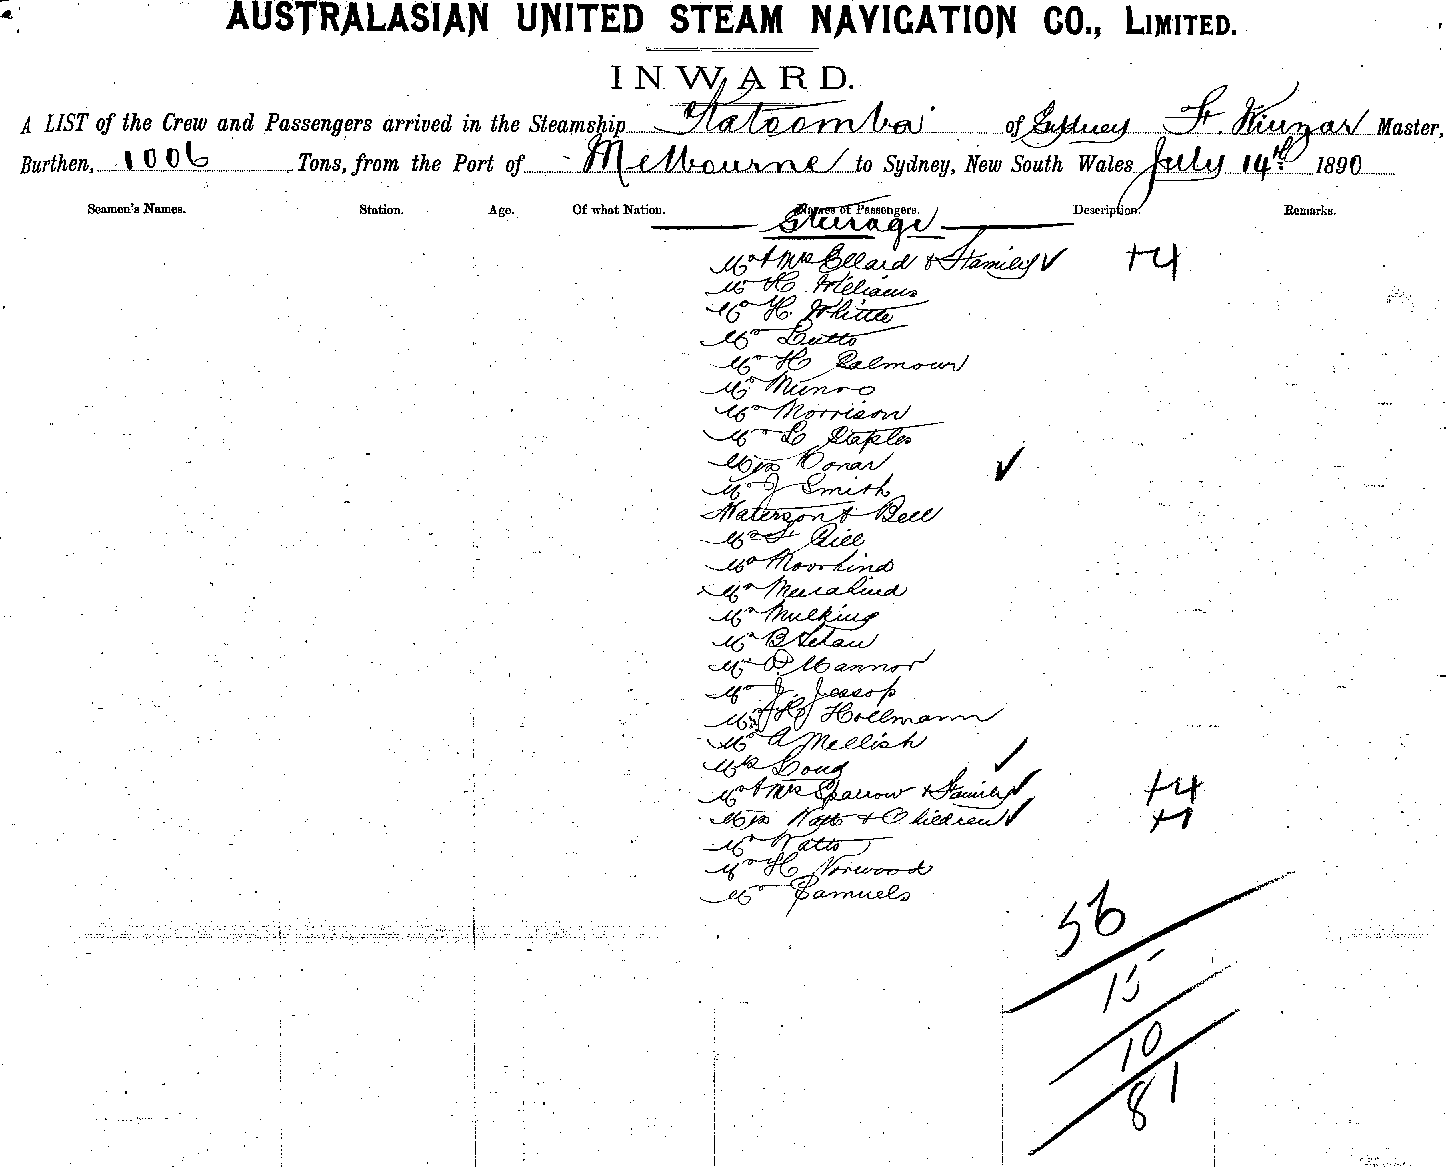 AUSTRALASIAN UNITED STEAM NAVIGATION CO., LIMITED.
INWARD.
A LIST of the Crew and Passengers arrived in the Steamship Katoomba of Sydney Master,
Burthen, 1006 Tons, from the Port of Melbourne to Sydney, New South Wales July 14th 1890
Seamen's Names. Station. Age. Of what Nation. Names of Passengers. Description. Remarks.
Steerage
Mr & Mrs Ellard & Family ✓ +4
Mr H Williams
Mr H. Whittle
Mr
Mr H
Mr Munro
Mr Morrison
Mr L Staples
Miss ✓
Mr J Smith
Waterson & Bell
Mr
Mr
Mr
Mr Mulking
Mr B Schau
Mr P. Mannor
Mr J. Jessop
H Hollmann
Mr A Mellish
Mrs Long ✓
Mr & Mrs Sparrow & Family ✓ +4
& Children ✓
Mr Watts
Mr H Norwood
Mr Samuels
56
15
10
81